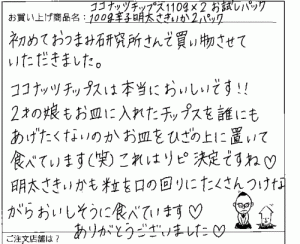 ココナッツチップス110g×2 お試しパック
お買い上げ商品名：100g辛子明太さきいか2パック
初めておつまみ研究所さんで買い物させて
いただきました。
ココナッツチップスは本当においしいです!!
2才の娘もお皿に入れたチップスを誰にも
あげたくないのかお皿をひざの上に置いて
食べています(笑)これはリピ決定ですね♡
明太さきいかも粒を口の回りにたくさんつけな
がらおいしそうに食べています♡
ありがとうございました♡
ご注文店舗は?